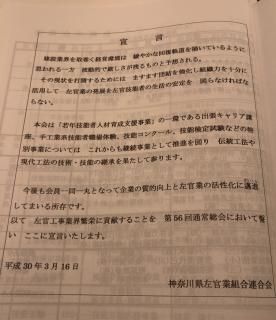 宣 言
建設業界を取巻く経営環境は 緩やかな回復軌道を描いているように
思われる一方 技動的で厳しさが残るものと予想される。
その現状を打開するためには ますます団結を強化し組織力を十分に
活用して 左官業の発展を左官技能者の生活の安定を 図らなければな
らない。
本会は「若年技能者人材育成支援事業」の一環である出張キャリア講
座、手工業系技能者職場体験、技能コンクール、技能検定試験などの特
別事業については これからも継続事業として推進を図り 伝統工法や
現代工法の技術・技能の継承を果たして参ります。
今後も会員一同一丸となって企業の質的向上と左官業の活性化に邁進
してまいる所存です。
以て 左官工事業界繁栄に貢献することを 第56回通常総会において誓
い ここに宣言いたします。
平成30年3月16日
神奈川県左官業組合連合会